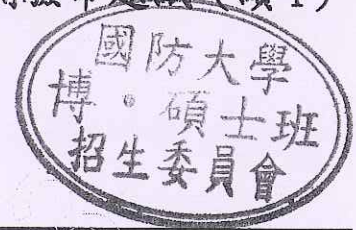 國防大學
博•碩士班
招生委員會